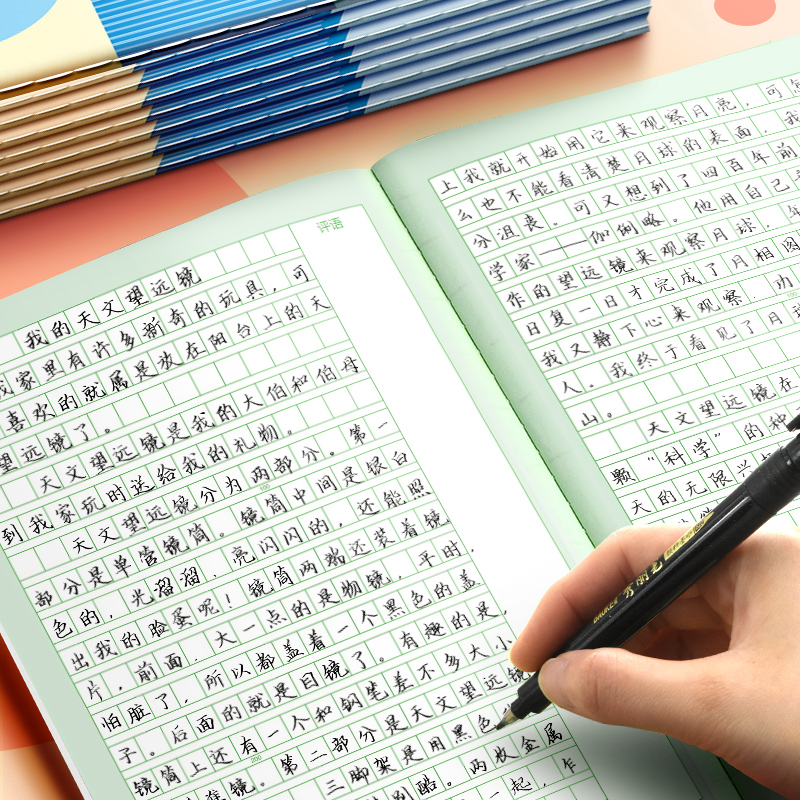 评语
我的天文望远镜
我家里有许多新奇的玩具，可
喜欢的就属是放在阳台上的天
望远镜了。
天文望远镜是我的大伯和伯母
到我家玩时送给我的礼物。
天文望远镜分为两部分。第一
部分是单管镜筒。镜筒中间是银白
色的，光溜溜，亮闪闪的，还能照
出我的脸蛋呢！镜筒两端还装着镜
片，前面，大一点的是物镜，平时，
怕脏了，所以都盖着一个黑色的盖
子。后面的就是目镜了。有趣的是，
镜筒上还有一个和钢笔差不多大小
镜。第二部分是天文望远镜
三脚架是用黑色
酷。两枚金属
一起，乍
200
上我就开始用它来观察月亮，可怎
么也不能看清楚月球的表面，我
分沮丧。可又想到了四百年前
学家——伽俐略。他用自己
作的望远镜来观察月球，年
日复一日才完成了月相图
100
我又静下心来观察，功
人。我终于看见了月球
山。
天文望远镜在
颗“科学”的种
天的无限